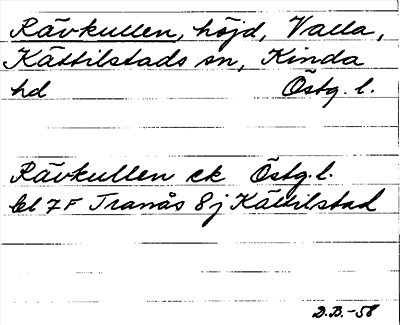 Rävkullen, höjd, Valla,
Kättilstads sn, Kinda
hd Östg. l.
Rävkullen ek Östg. l.
bl 7F Tranås 8 j Kättilstad
D.B.-58